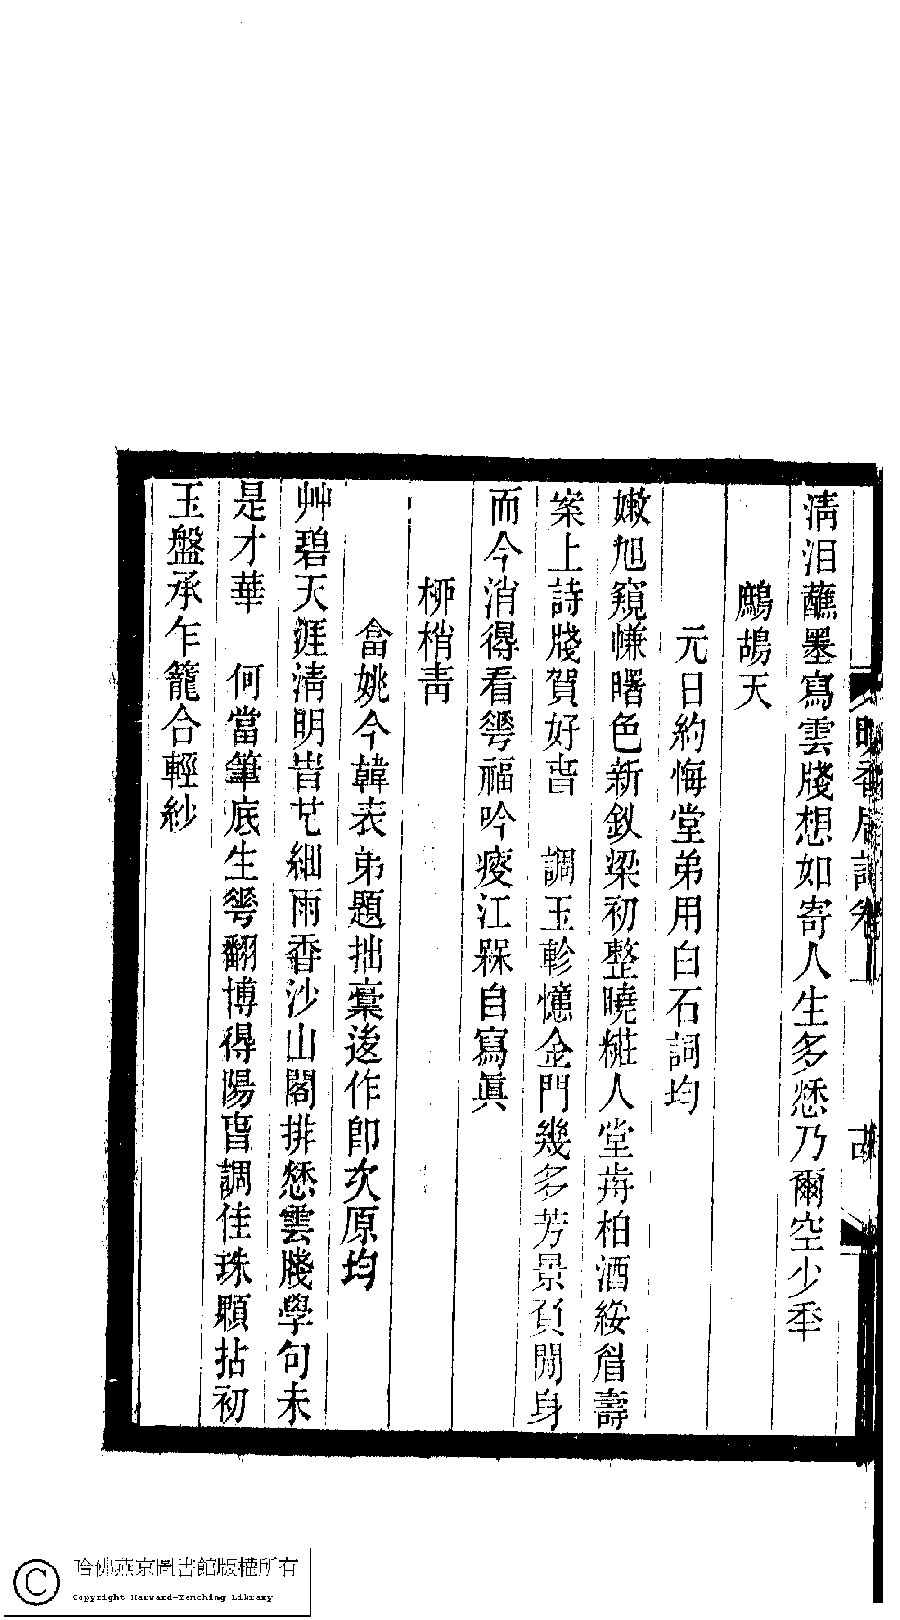 居詞卷上
清泪蘸墨寫雲牋想如寄人生多愁乃爾空少秊
鷓鴣天
元日約悔堂弟用白石詞均
嫩旭窺㡘曙色新釵梁初整曉糚人堂歬柏酒綏眉壽
案上詩牋賀好旾　調玉軫憶金門幾多芳景負閒身
而今消得看雩福吟瘦江槑自寫眞
桺梢靑
畣姚今韓表弟題拙稾後作卽次原均
艸碧天涯清明旹細雨香沙山閣排愁雲牋學句未
是才華　何當筆底生雩翻博得陽旾調佳珠顆拈初
玉盤承乍籠合輕紗
哈佛燕京圖書館版權所有
Copyright Harvard-Yenching Library